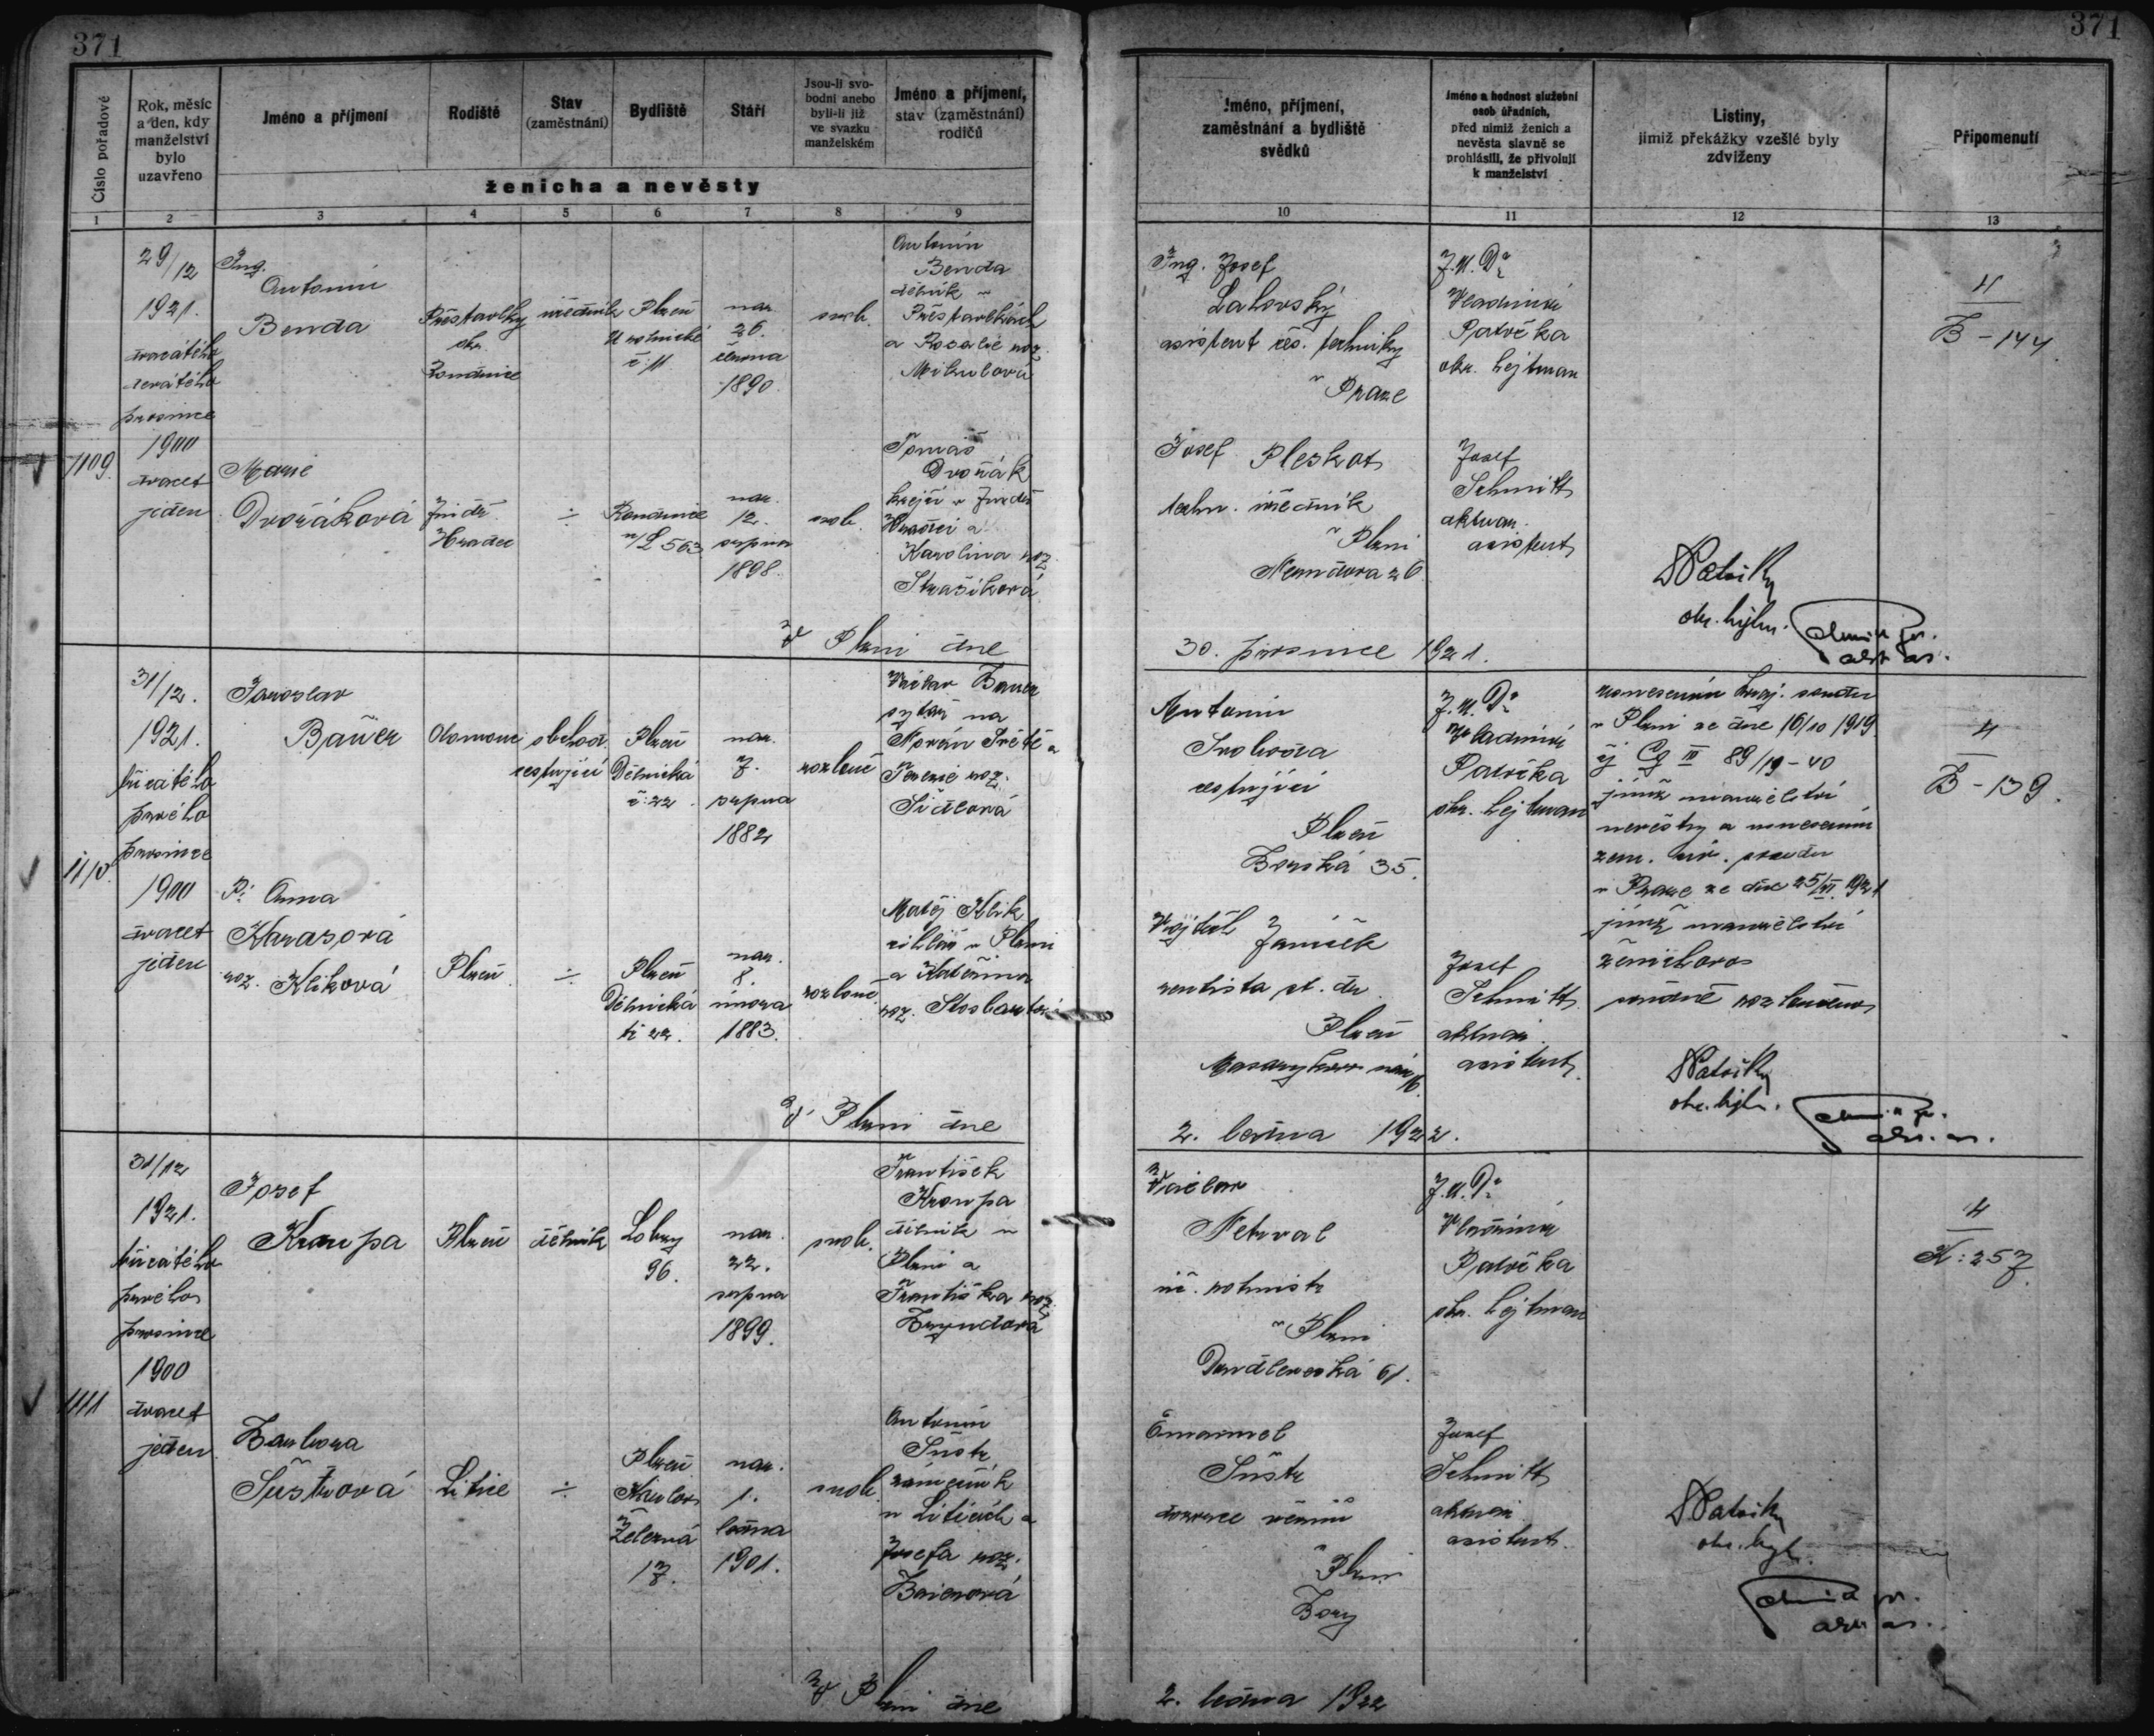 371
371
Číslo pořadové
Rok, měsíc
a den, kdy
manželství
bylo
uzavřeno
Jméno a příjmení
Rodiště
Stav
(zaměstnání)
Bydliště
Stáří
Jsou-li svo-
bodni anebo
byli-li již
ve svazku
manželském
Jméno a příjmení,
stav (zaměstnání)
rodičů
ženicha a nevěsty
Jméno, příjmení,
zaměstnání a bydliště
svědků
Jméno a hodnost služební
osob úřadních,
před nimiž ženich a
nevěsta slavně se
prohlásili, že přivolují
k manželství
Listiny,
jimiž překážky vzešlé byly
zdviženy
Připomenutí
1 2 3 4 5 6 7 8 9
10 11 12 13
1109
29/12
1921.
dvacátého
devátého
prosince
1900
dvacet
jeden
Ing.
Antonín
Benda
Přestavlky
okr.
Roudnice
úředník
Plzeň
č 11
nar.
26.
června
1890.
svob.
Antonín
Benda
dělník v
Přestavlkách
a Rosalie roz.
Mikulová
Marie
Dvořáková
Jindř.
Hradec
÷
Roudnice
n/L 563
nar.
12.
srpna
1898.
svob.
Tomáš
Dvořák
krejčí v Jindř.
Hradci a
Karolina roz.
Ing. Josef
asistent čes. techniky
v Praze
J.U.Dr
Vladimír
Patočka
okr. hejtman
4
B - 144
Josef Pleskot
techn. úředník
v Plzni
Nerudova 26
Josef
Schmitt
aktuar.
asistent
V Plzni dne
30. prosince 1921.
1110
31/12.
1921.
třicátého
prvého
prosince
1900
dvacet
jeden
Jaroslav
Bauer
Olomouc
obchod.
cestující
Plzeň
Dělnická
č: 22
nar.
7.
srpna
1882
rozlouč.
Václav Bauer
na
a
Terezie roz.
Šídlová
Pí Anna
Karasová
roz. Kliková
Plzeň
÷
Plzeň
Dělnická
č 22.
nar.
8.
února
1883.
rozlouč.
Matěj Klik
cihlář v Plzni
a Kateřina
roz.
Antonín
Svoboda
cestující
Plzeň
Borská 35.
J.U.Dr
Vladimír
Patočka
okr. hejtman
usnesením kraj. soudu
v Plzni ze dne 16/10 1919
čj Cg III 89/19-40
jímž manželství
nevěsty a usnesením
zem. civ. soudu
v Praze ze dne 25/VI 1921
jímž manželství
ženichovo
rozloučeno
4
B - 139.
Vojtěch Janíček
st. dr.
Plzeň
Masarykovo nám
Josef
Schmitt
aktuar.
asistent
V Plzni dne
2. ledna 1922.
1111
31/12
1921.
třicátého
prvého
prosince
1900
dvacet
jeden
Josef
Kroupa
Plzeň
dělník
Lobzy
96.
nar.
22.
srpna
1899.
svob.
František
Kroupa
dělník v
Plzni a
Františka roz.
Barbora
Šustrová
Litice
÷
Plzeň
Železná
17.
nar.
1.
ledna
1901.
svob.
Antonín
Šustr
zámečník
v Liticích a
Josefa roz.
Baierová
Václav
Netrval
v Plzni
Doudlevecká 61.
J.U.Dr
Vladimír
Patočka
okr. hejtman
4
K: 257
Emanuel
Šustr
dozorce vězňů
Plzni
Bory
Josef
Schmitt
aktuar.
asistent.
V Plzni dne
2. ledna 1922